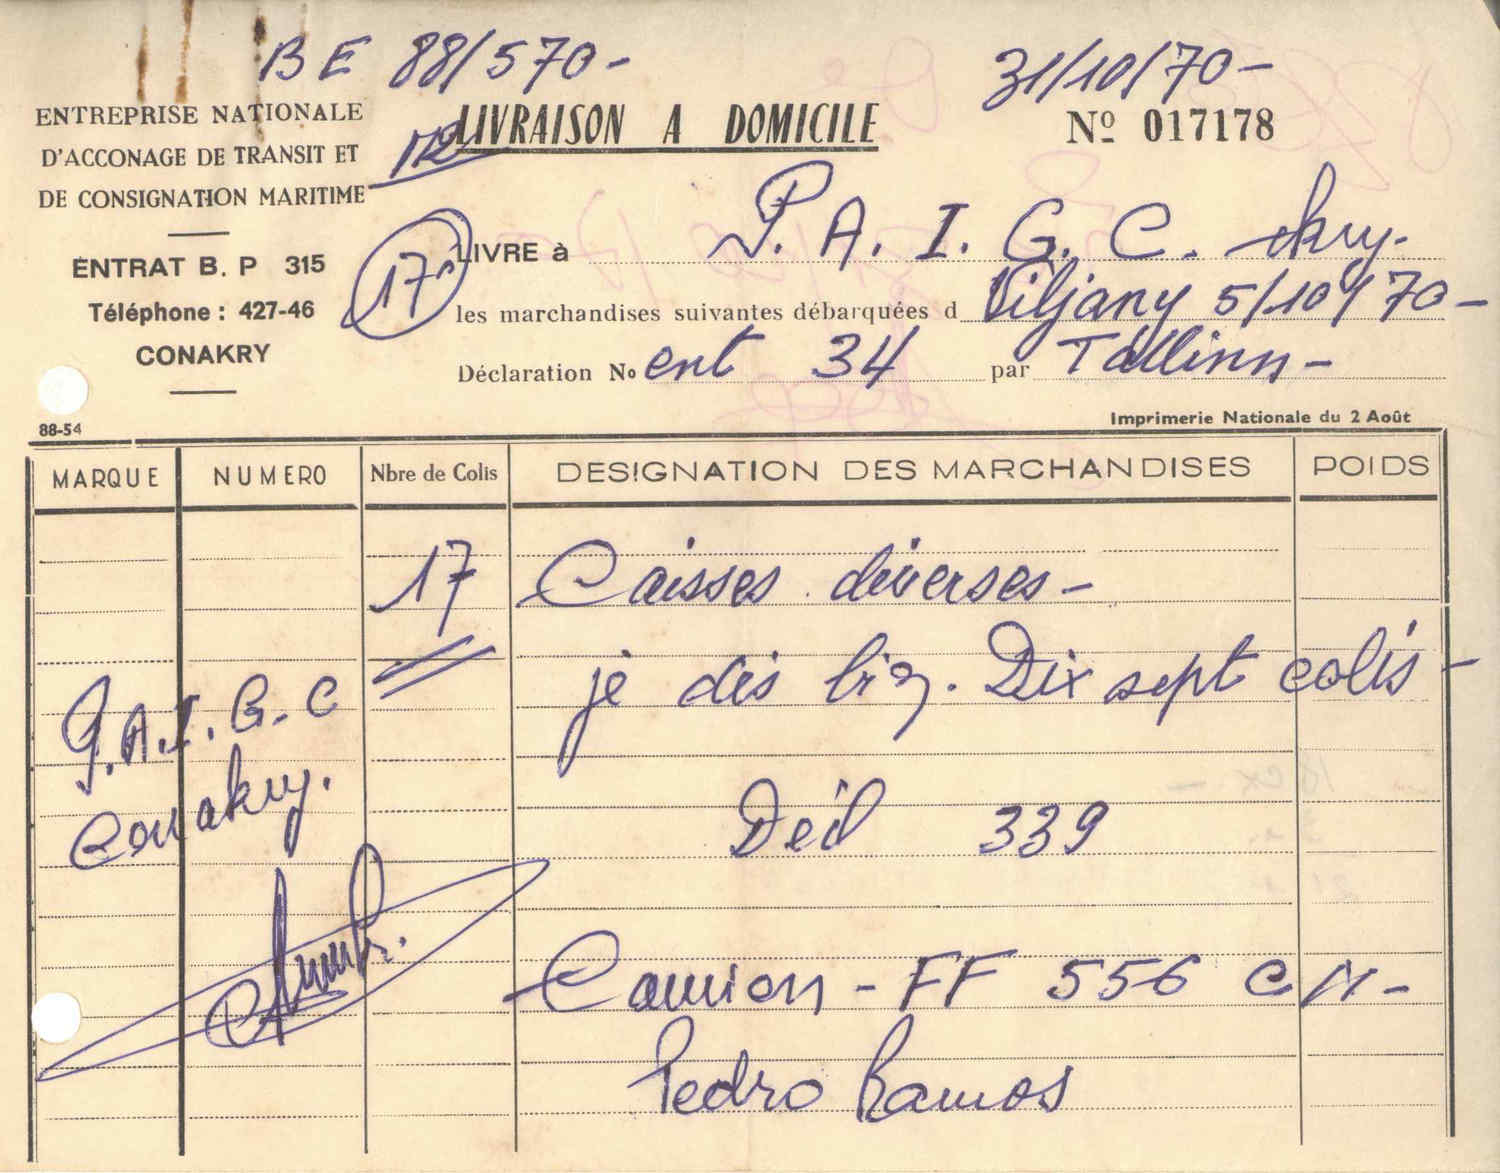 BE 88/570-
31/10/70-
ENTREPRISE NATIONALE
D'ACCONAGE DE TRANSIT ET
DE CONSIGNATION MARITIME
ENTRAT B. P 315
Téléphone : 427-46
CONAKRY
88-54
LIVRAISON A DOMICILE
Nº 017178
17
LIVRE à P. A. I. G. C. ckry.
les marchandises suivantes débarquées d Viljany 5/10/70-
Déclaration No ent 34 par Tallinn-
Imprimerie Nationale du 2 Août
MARQUE NUMERO Nbre de Colis DESIGNATION DES MARCHANDISES POIDS
17 Caisses diverses-
je dis Dix sept colis-
P.A.I.G.C
Conakry.
339
Camion - FF 556 C
Pedro Ramos